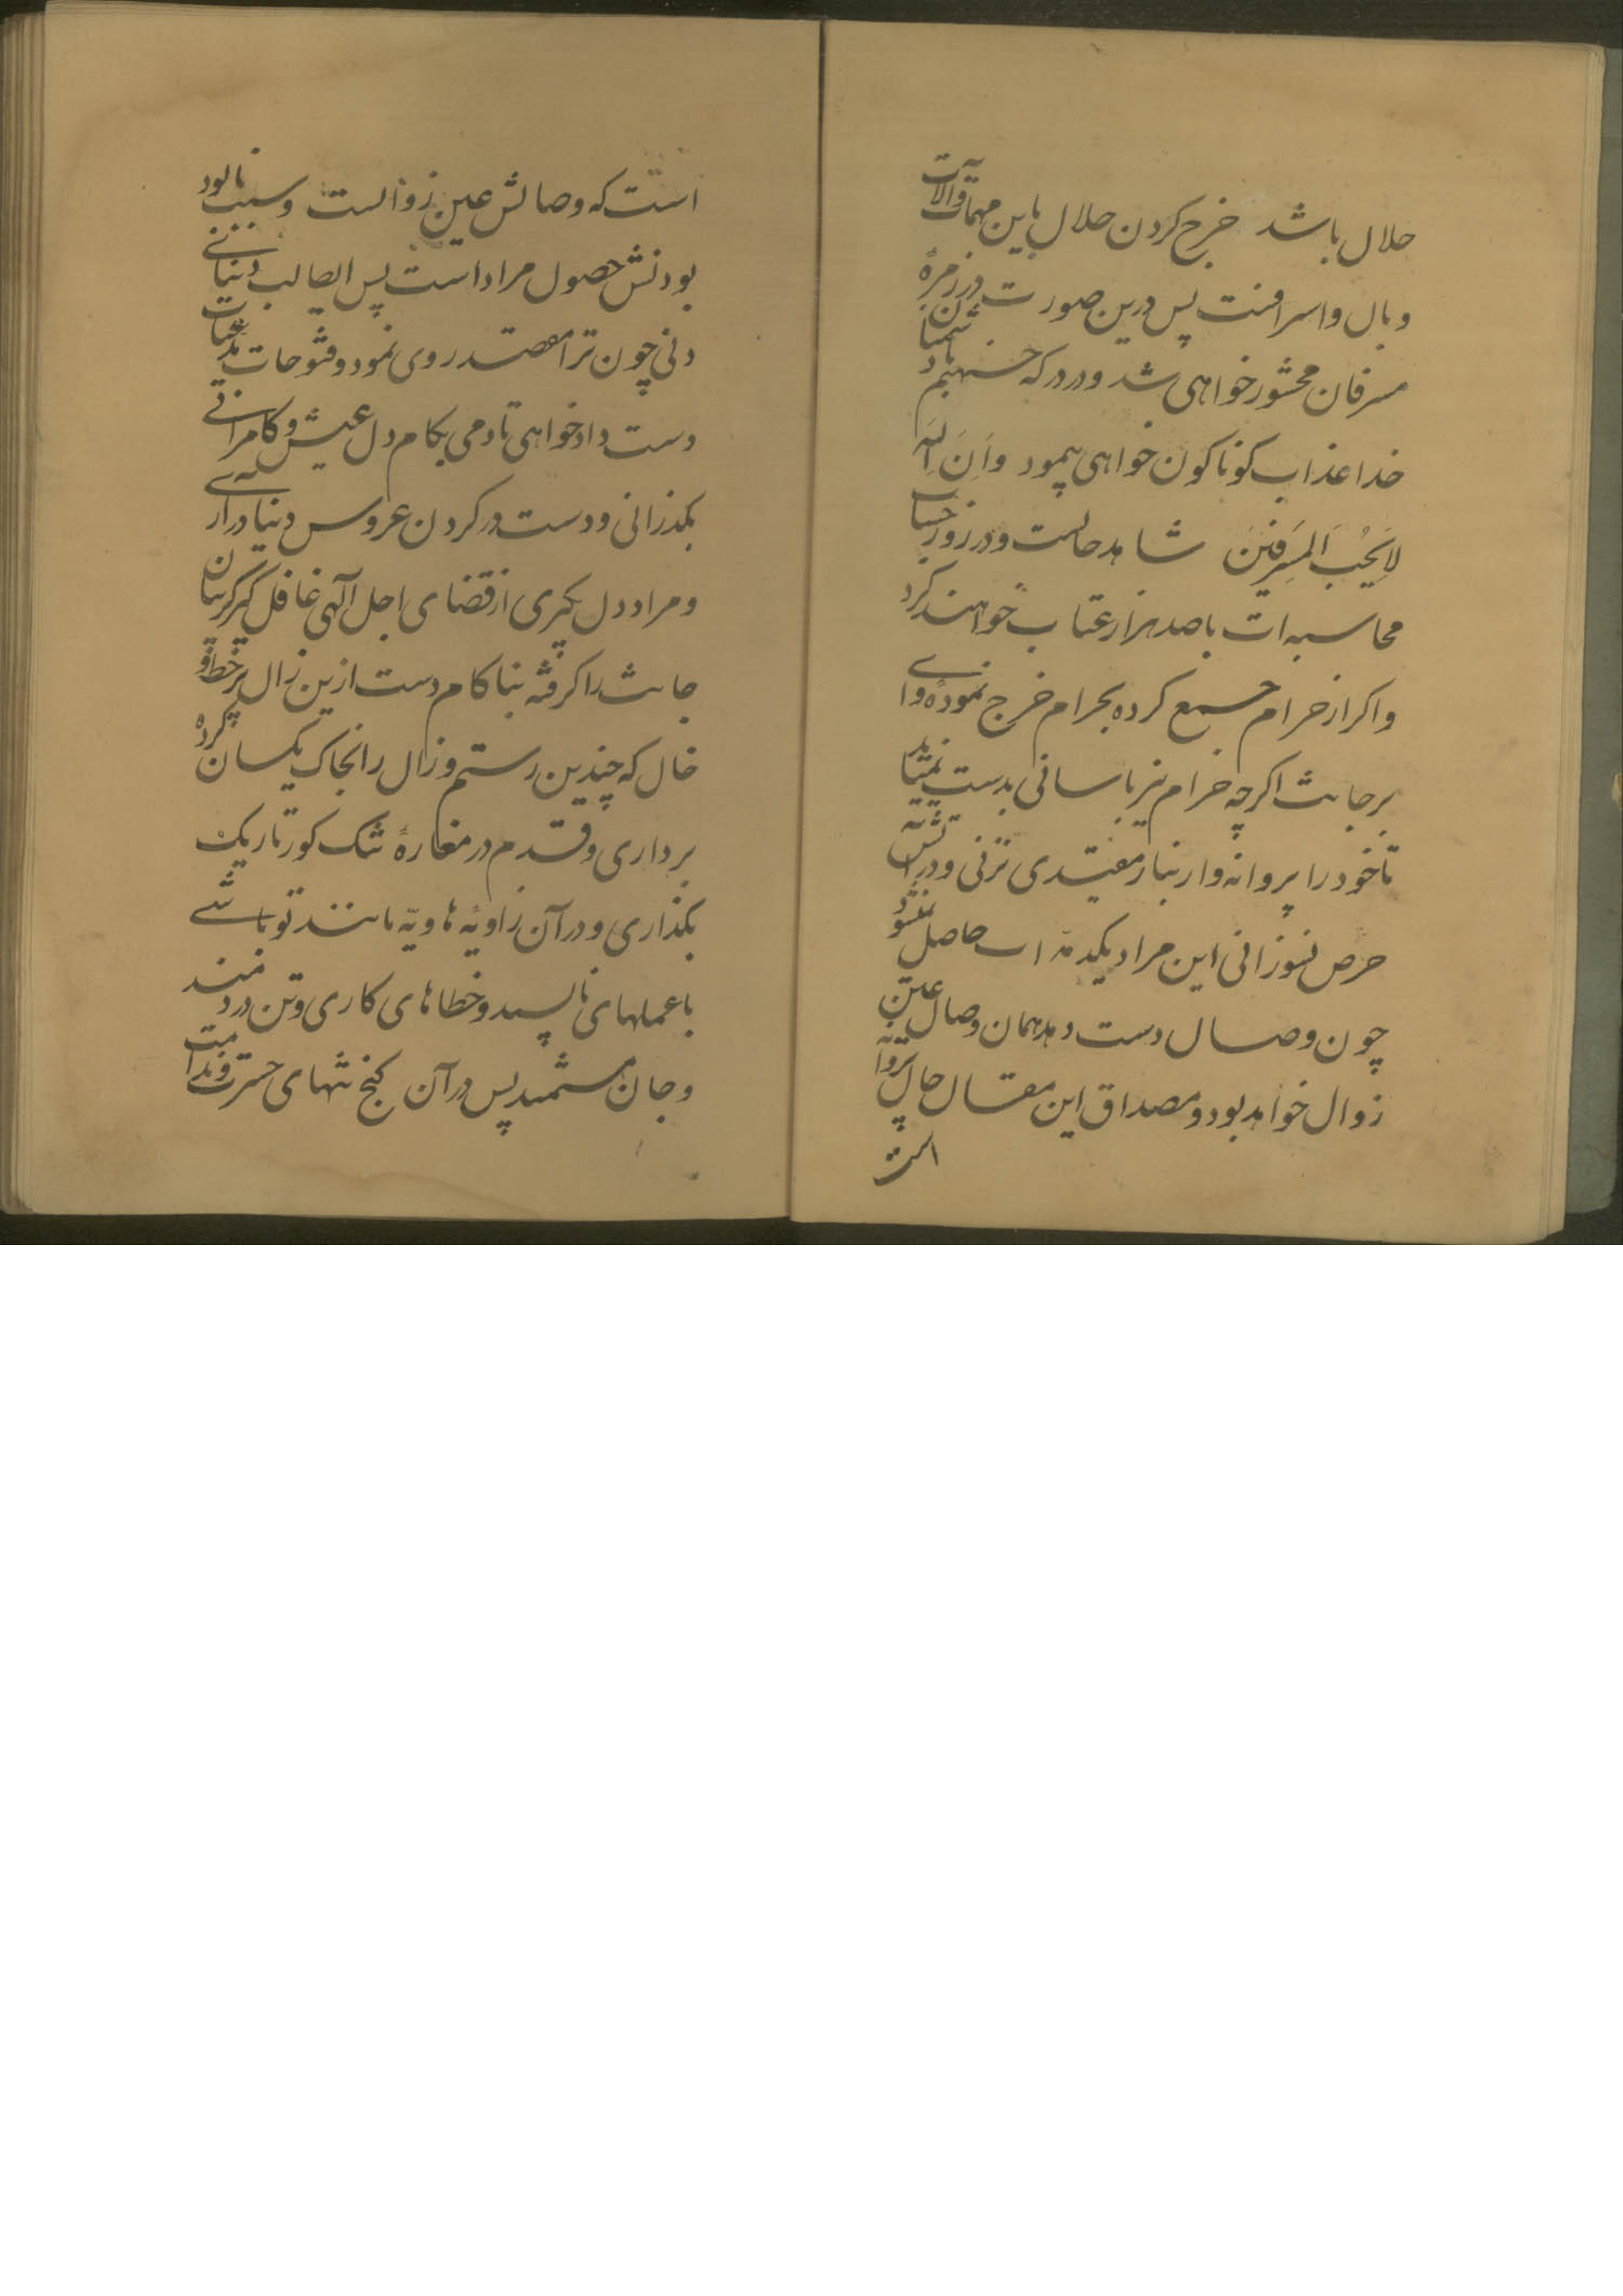 حلال باشد خرج کردن حلال باین مهمات والات
وبال و اسرافست پس درین صورت در زمرهٔ
مسرفان محشور خواهی شد و در درکه جهنم
خدا عذاب کوناکون خواهی پیمود وَاَنَ اللّهَ
لایُحِبُ المُسرِفینَ شاهد حالست و در روز حساب
محاسبه ات با صد هزار عتاب خواهند کرد
و اکر از حرام جمیع کرده بحرام خرج نموده
بر جانت اکرچه حرام نیز باسانی بدست نمیاید
تا خود را پروانه وار نزنی و در آتش
حرص نسوزانی این مراد حاصل نشود
چون وصال دست دهد همان وصال عین
زوال خواهد بود و مصداق این مقال حال پروانه
است
است که وصالش عین زوالست و سبب نابود
بودنش حصول مراد است پس ایطالب دنیای
دنی چون ترا مقصد روی نمود و فتوحات
دست داد خواهی تا دمی بکام دل عیش و کامرانی
بکذرانی و دست در کردن عروس دنیا در آری
و مراد دل بکیری از قضای اجل آلهی غافل کیر کریبان
جانت را کرفته بناکام دست ازین زال پر خط و
خال که چندین رستم و زال را بخاک یکسان کرده
برداری و قدم در مغارهٔ تنک کور تاریک
بکذاری و در آن زاویهٔ هاویه مانند تو باشی
با عملهای ناپسند و خطاهای کاری و تن دردمند
و جان مستمند پس در آن کنج تنهای حسرت و ندامت